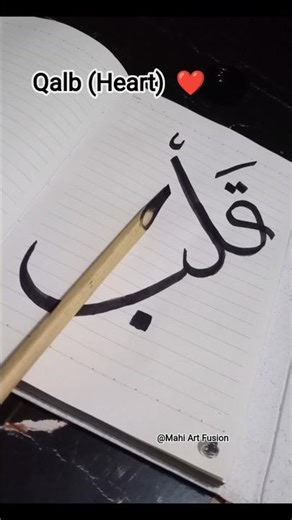 Qalb (Heart) ❤️
قَلْب
@Mahi Art Fusion